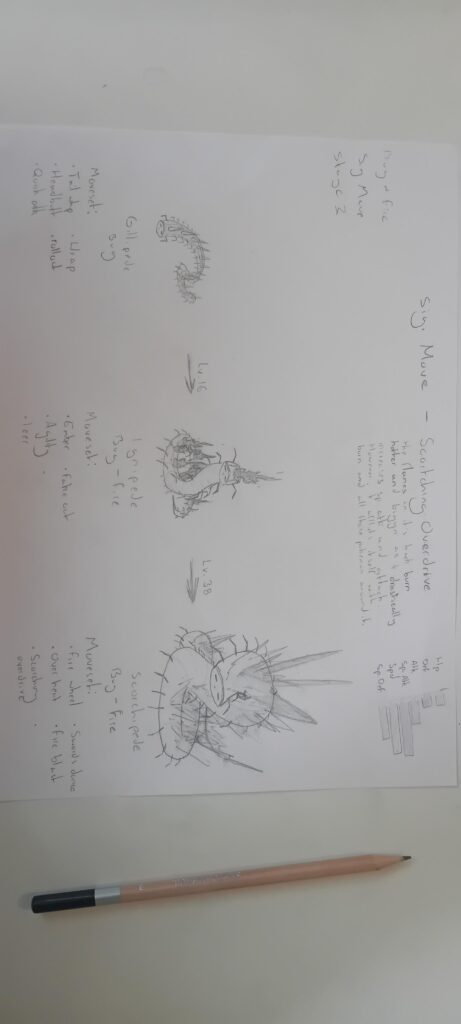 Bug + Fire
Sig Move
Stage 3
Sig. Move - Scortching Overdrive
the flames on its back burn
hotter and bigger as it drastically
increases sp. atk and attack
However, it afflicts itself with
burn and all other pokemon around it.
Hp
Atk
Def
Sp. Atk
Spd
Sp. Def
Lv. 16
Lv. 38
Gillipede
Bug
Moveset:
• Tail whip • Wrap
• Headbutt • rollout
• Quick atk
Ignipede
Bug - Fire
Moveset:
• Ember • Fake out
• Agility •
• Leer
Scorchipede
Bug - Fire
Moveset:
• Fire wheel • Swords dance
• Overheat • Fire blast
• Scorching •
overdrive